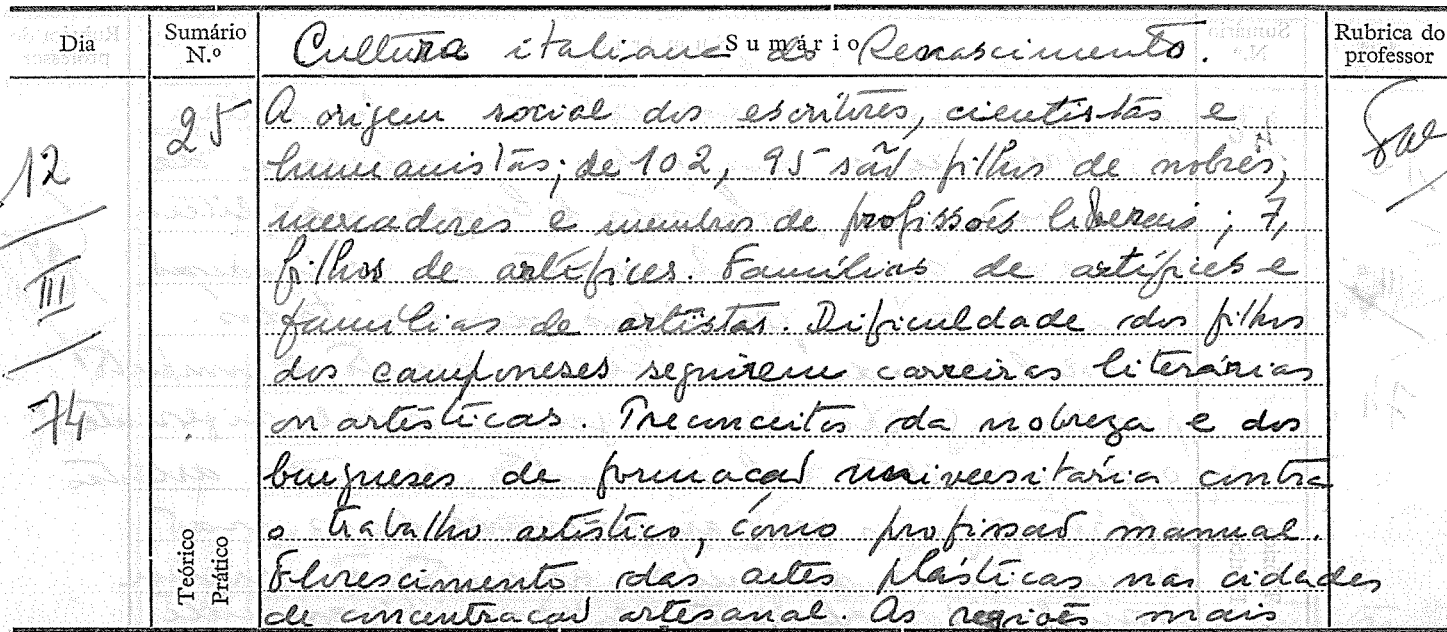 Dia
Sumário N.º
Sumário
Rubrica do professor
Cultura italiana do Renascimento.
12
III
74
25
A origem social dos escritores, cientistas e
humanistas; de 102, 95 são filhos de nobres,
mercadores e membros de profissões liberais; 7,
filhos de artífices. Famílias de artífices e
famílias de artistas. Dificuldade dos filhos
dos camponeses seguirem carreiras literárias
ou artísticas. Preconceitos da nobreza e dos
burgueses de formação universitária contra
o trabalho artístico, como profissão manual.
Florescimento das artes plásticas nas cidades
de concentração artesanal. As regiões mais
Teórico
Prático